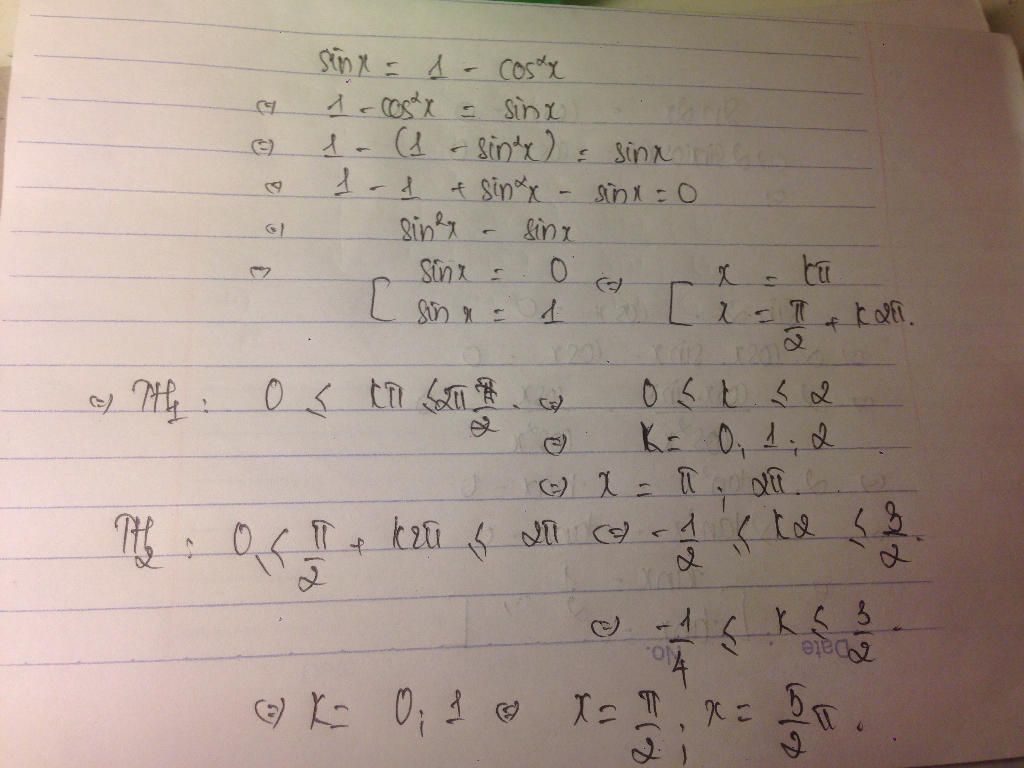 sinx = 1 - cos²x
⇔ 1 - cos²x = sinx
⇔ 1 - (1 - sin²x) = sinx
⇔ 1 - 1 + sin²x - sinx = 0
⇔ sin²x - sinx
⇔ [ sinx = 0 ⇔ [ x = kπ
sinx = 1 x = π/2 + k2π.
⇒ TH1 : 0 ≤ kπ ≤ 2π ⇔ 0 ≤ k ≤ 2
⇔ K = 0, 1, 2
⇔ x = π ; 2π.
TH2 : 0 ≤ π/2 + k2π ≤ 2π ⇔ -1/2 ≤ k2 ≤ 3/2.
⇔ -1/4 ≤ k ≤ 3/2.
⇔ K = 0, 1 ⇔ x = π/2 ; x = 5/2 π.
No.
Date